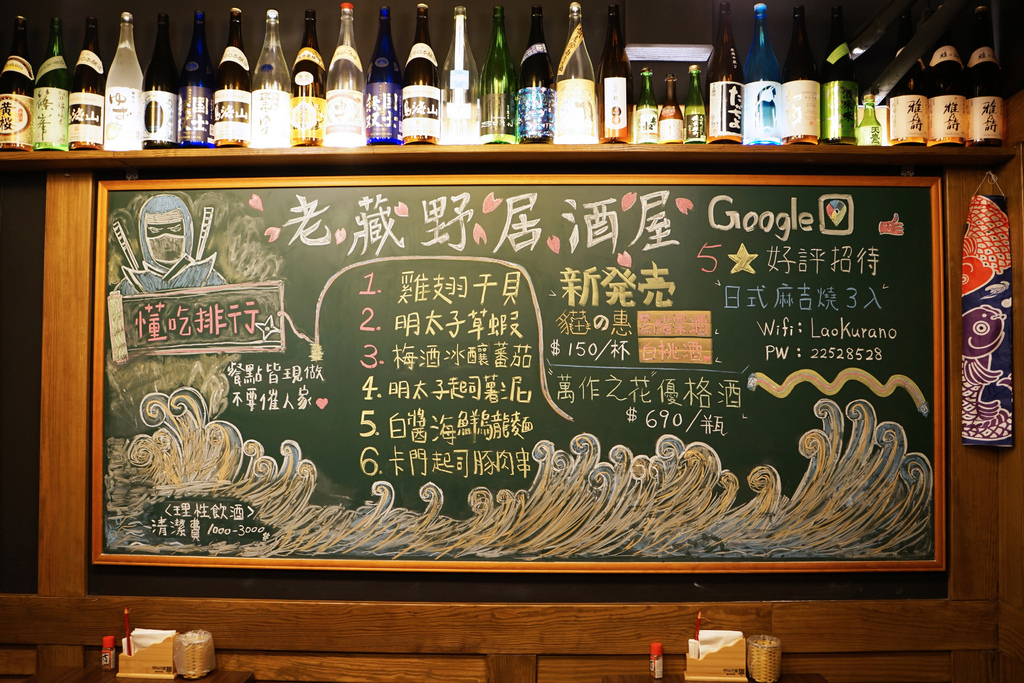 老藏野居酒屋
Google
5 ★ 好評招待
日式麻吉燒3入
Wifi: Laokurano
PW: 22528528
懂吃排行
餐點皆現做
不要催人家
1. 雞翅干貝
2. 明太子草蝦
3. 梅酒冰釀蕃茄
4. 明太子起司薯泥
5. 白醬海鮮烏龍麵
6. 卡門起司豚肉串
新発売
貓の惠
白桃酒
$150/杯
萬作之花優格酒
$690/瓶
<理性飲酒>
清潔費 1000-3000